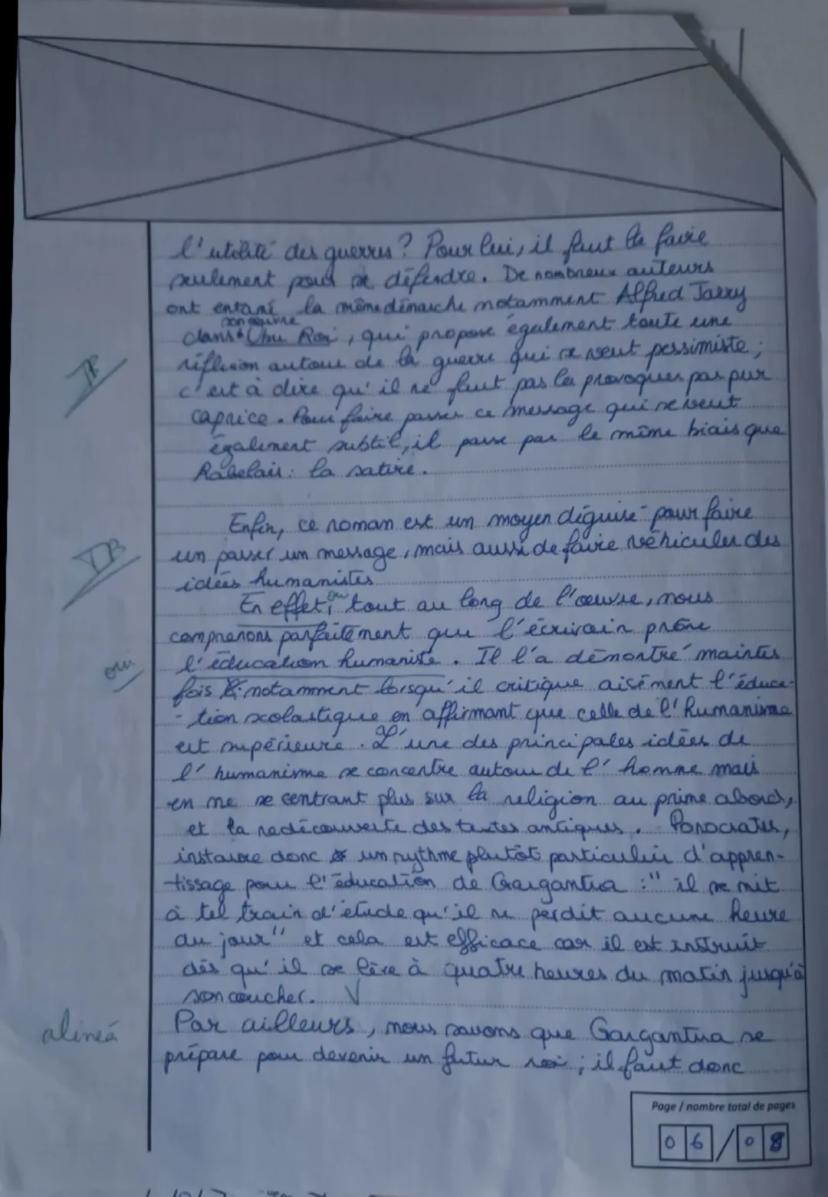 l'utilité des guerres? Pour lui, il faut la faire
seulement pour se défendre. De nombreux auteurs
ont entamé la même démarche notamment Alfred Jarry
son œuvre
dans Ubu Roi, qui propose également toute une
réflexion autour de la guerre qui se veut pessimiste;
TB
c'est à dire qu'il ne faut pas les provoquer pas pur
caprice. Pour faire passer ce message qui se veut
également subtil, il passe par le même biais que
Rabelais: la satire.
Enfin, ce roman est un moyen déguisé pour faire
TB
un passer un message, mais aussi de faire véhiculer des
idées humanistes
En effet, tout au long de l'œuvre, nous
comprenons parfaitement que l'écrivain prône
oui
l'éducation humaniste. Il l'a démontré maintes
fois notamment lorsqu'il critique aisément l'éduca-
-tion scolastique en affirmant que celle de l'humanisme
est supérieure. L'une des principales idées de
l'humanisme se concentre autour de l'homme mais
en ne se centrant plus sur la religion au prime abord,
et la redécouverte des textes antiques. Ponocrates,
instaure donc un rythme plutôt particulier d'appren-
-tissage pour l'éducation de Gargantua : "il se mit
à tel train d'étude qu'il ne perdit aucune heure
du jour" et cela est efficace car il est instruit
dès qu'il se lève à quatre heures du matin jusqu'à
son coucher. √
alinéa
Par ailleurs, nous savons que Gargantua se
prépare pour devenir un futur roi; il faut donc
Page / nombre total de pages
06/08